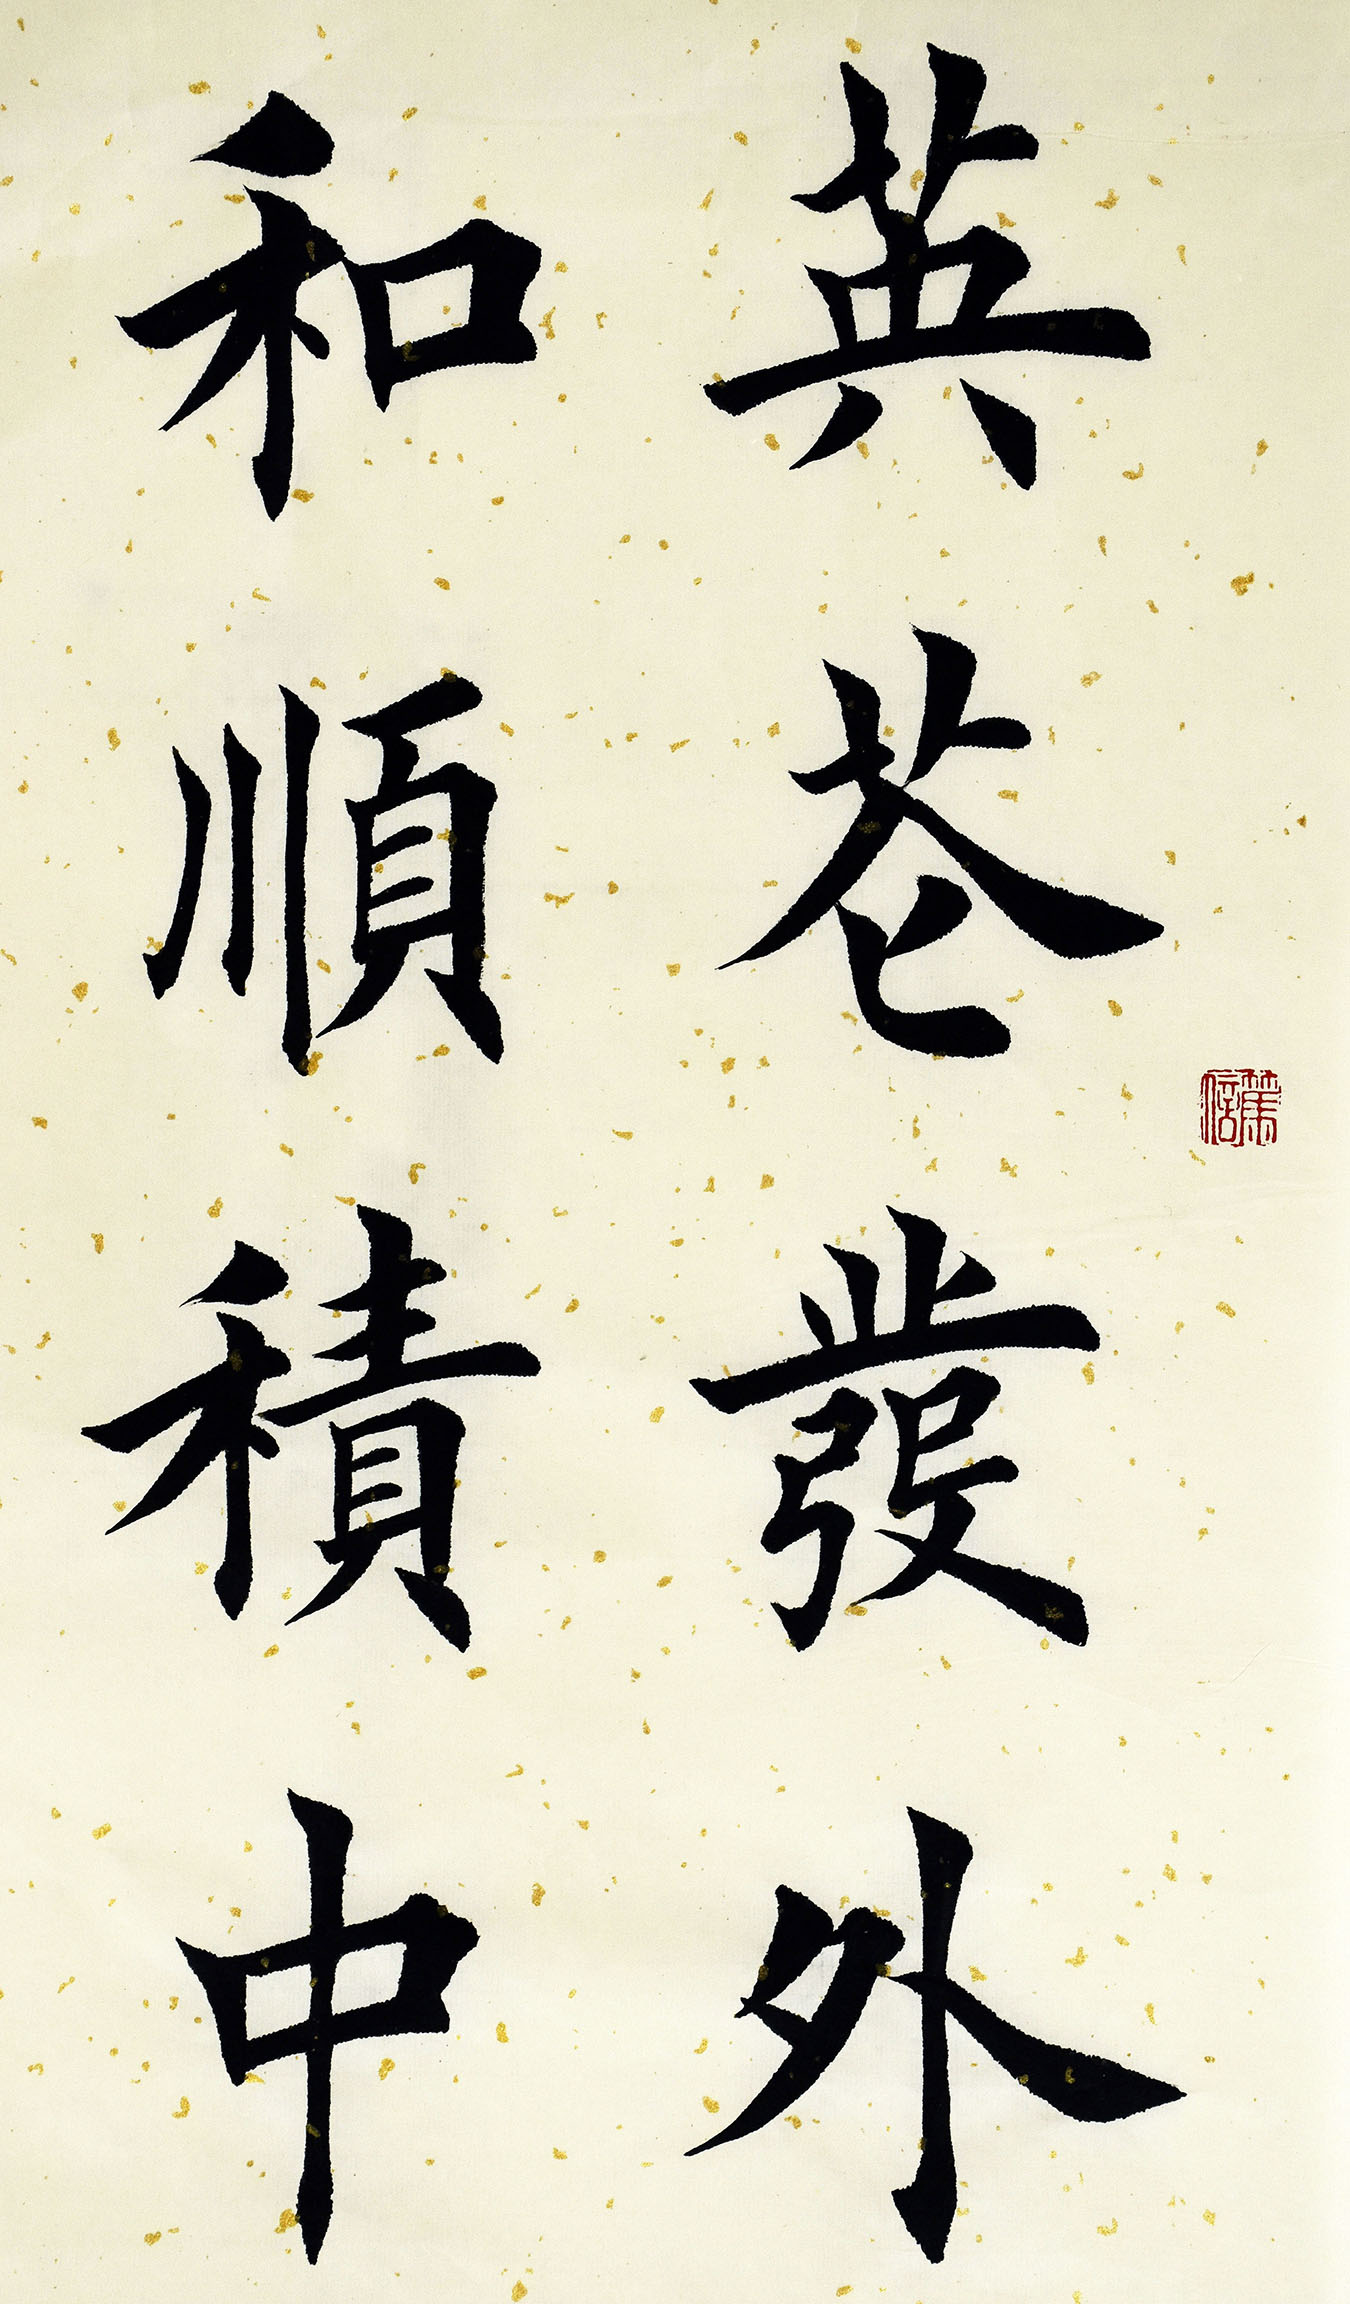 英芲發外
和順積中